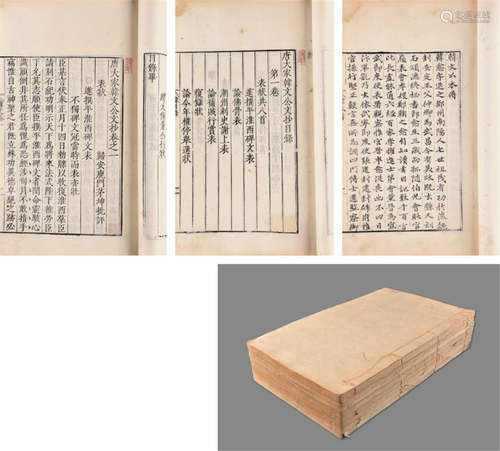 目錄畢
唐大家韓文公文抄卷之一
歸安鹿門茅坤批評
表狀
進撰平淮西碑文表
不獨碑文冠當時而表亦壯
臣某言伏奉正月十四日勅牒以收復淮西羣臣
請刻石紀功明示天下為將來法式陛下推勞臣
下允其志願使臣撰平淮西碑文者聞命震駭心
識顛倒非其所任為愧為恐經涉旬月不敢措手
竊惟自古神聖之君既立殊功異德卓絕之跡必
唐大家韓文公文抄目錄
第一卷
表狀共八首
進撰平淮西碑文表
潮州刺史謝上表
論佛骨表
論捕賊行賞表
復讎狀
論今年權停舉選狀
韓文公本傳
韓愈字退之鄧州南陽人七世祖茂有功後魏
封安定王父仲卿為武昌令有美政既去縣人刻
石頌德終祕書郎愈生三歲而孤隨伯兄會貶官
嶺表會卒嫂鄭鞠之愈自知讀書日記數千百言
比長盡能通六經百家學擢進士第會董晉為宣
武節度使表署觀察推官晉卒愈從喪出不四日
汴軍亂乃去依武寧節度使張建封建封辟府推
官操行堅正鯁言無所忌調四門博士遷監察御